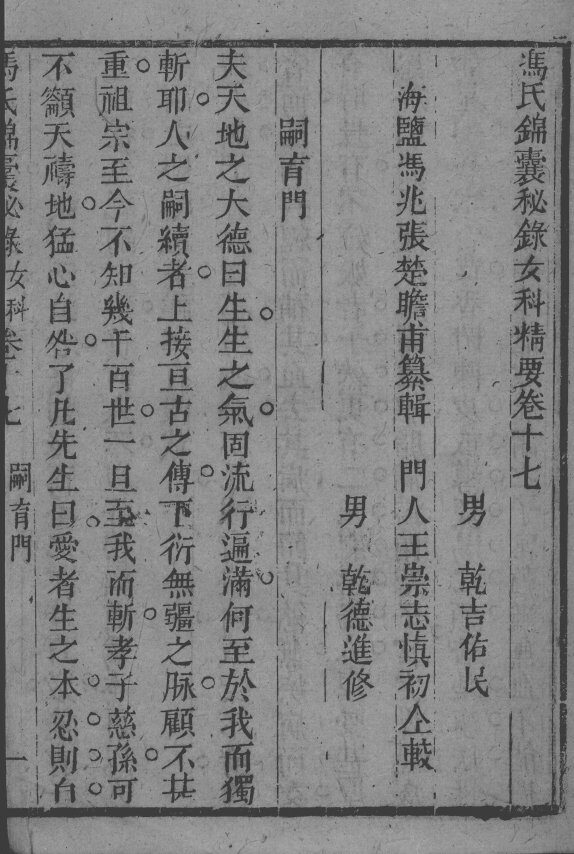 馮氏錦囊秘錄女科精要卷十七
男 乾吉佑民
海鹽馮兆張楚瞻甫纂輯 門人王崇志慎初仝較
男 乾德進修
嗣育門
夫天地之大德曰生生之氣固流行遍滿何至於我而獨
斬耶人之嗣續者上接亘古之傳下衍無疆之脉顧不甚
重祖宗至今不知幾千百世一旦至我而斬孝子慈孫可
不籲天禱地猛心自咎了凡先生曰愛者生之本忍則自
馮氏錦囊秘錄女科卷十七 嗣育門 一